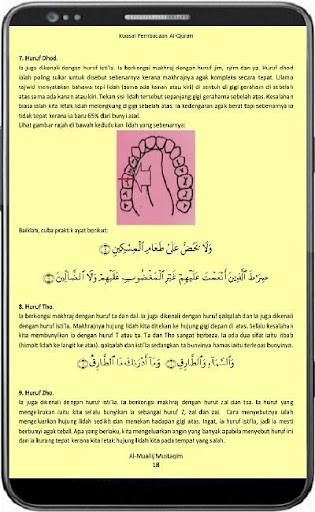 Kuasai Pembacaan Al-Quran
7. Huruf Dhod.
Ia juga dikenali dengan huruf isti'la. Ia berkongsi makhraj dengan huruf jim, syim dan ya. Huruf dhod
ialah paling sukar untuk disebut sebenarnya kerana makhrajnya agak kompleks secara tepat. Ulama
tajwid menyatakan bahawa tepi lidah (sama ada kanan atau kiri) di sentuh di gigi geraham di sebelah
atas sama ada kanan atau kiri. Tekan sisi lidah tersebut sepanjang gigi gerahama sebelah atas. Kesalahan
biasa ialah kita letak lidah melengkang di gigi sebelah atas. Ia kedengaran agak berat tapi sebenarnya ia
tidak tepat kerana ia baru 65% dari bunyi asal.
Lihat gambar rajah di bawah kedudukan lidah yang sebenarnya:
Baiklah, cuba praktik ayat berikut:
وَلَا يَحُضُّ عَلَىٰ طَعَامِ ٱلْمِسْكِينِ
صِرَٰطَ ٱلَّذِينَ أَنْعَمْتَ عَلَيْهِمْ غَيْرِ ٱلْمَغْضُوبِ عَلَيْهِمْ وَلَا ٱلضَّآلِّينَ
8. Huruf Tho.
Ia berkongsi makhraj dengan huruf ta dan dal. Ia juga dikenali dengan huruf qalqalah dan ia juga dikenali
dengan huruf isti'la. Makhrajnya hujung lidah kita ditekan ke hujung gigi depan di atas. Selalu kesalahan
kita membunyikan ia dengan huruf T atau ta. Ta dan Tho sangat berbeza. Ia ada dua sifat iaitu itbaq
(himpit lidah ke langit ke atas), qalqalah dan isti'la sedangkan ta bunyinya hamas iaitu terlepas bunyinya.
وَٱلسَّمَآءِ وَٱلطَّارِقِ وَمَآ أَدْرَىٰكَ مَا ٱلطَّارِقُ
9. Huruf Zho.
Ia juga dikenali dengan huruf isti'la. Ia berkongsi makhraj dengan huruf zal dan tsa. Ia huruf yang
mengelirukan iaitu kita selalu bunyikan ia sebangai huruf Z, zal dan zai. Cara menyebutnya ialah
mengeluarkan hujung lidah sedikit dan menekan hadapan gigi atas. Ingat, ia huruf isti'la, jadi ia mesti
berbunyi agak tebal. Apa yang berlaku, kita mengeluarkan angin yang banyak apabila menyebut huruf ini
dan ia kurang tepat kerana kita letak hujung lidah kita pada tempat yang salah.
Al-Muallij Mustaqim
18